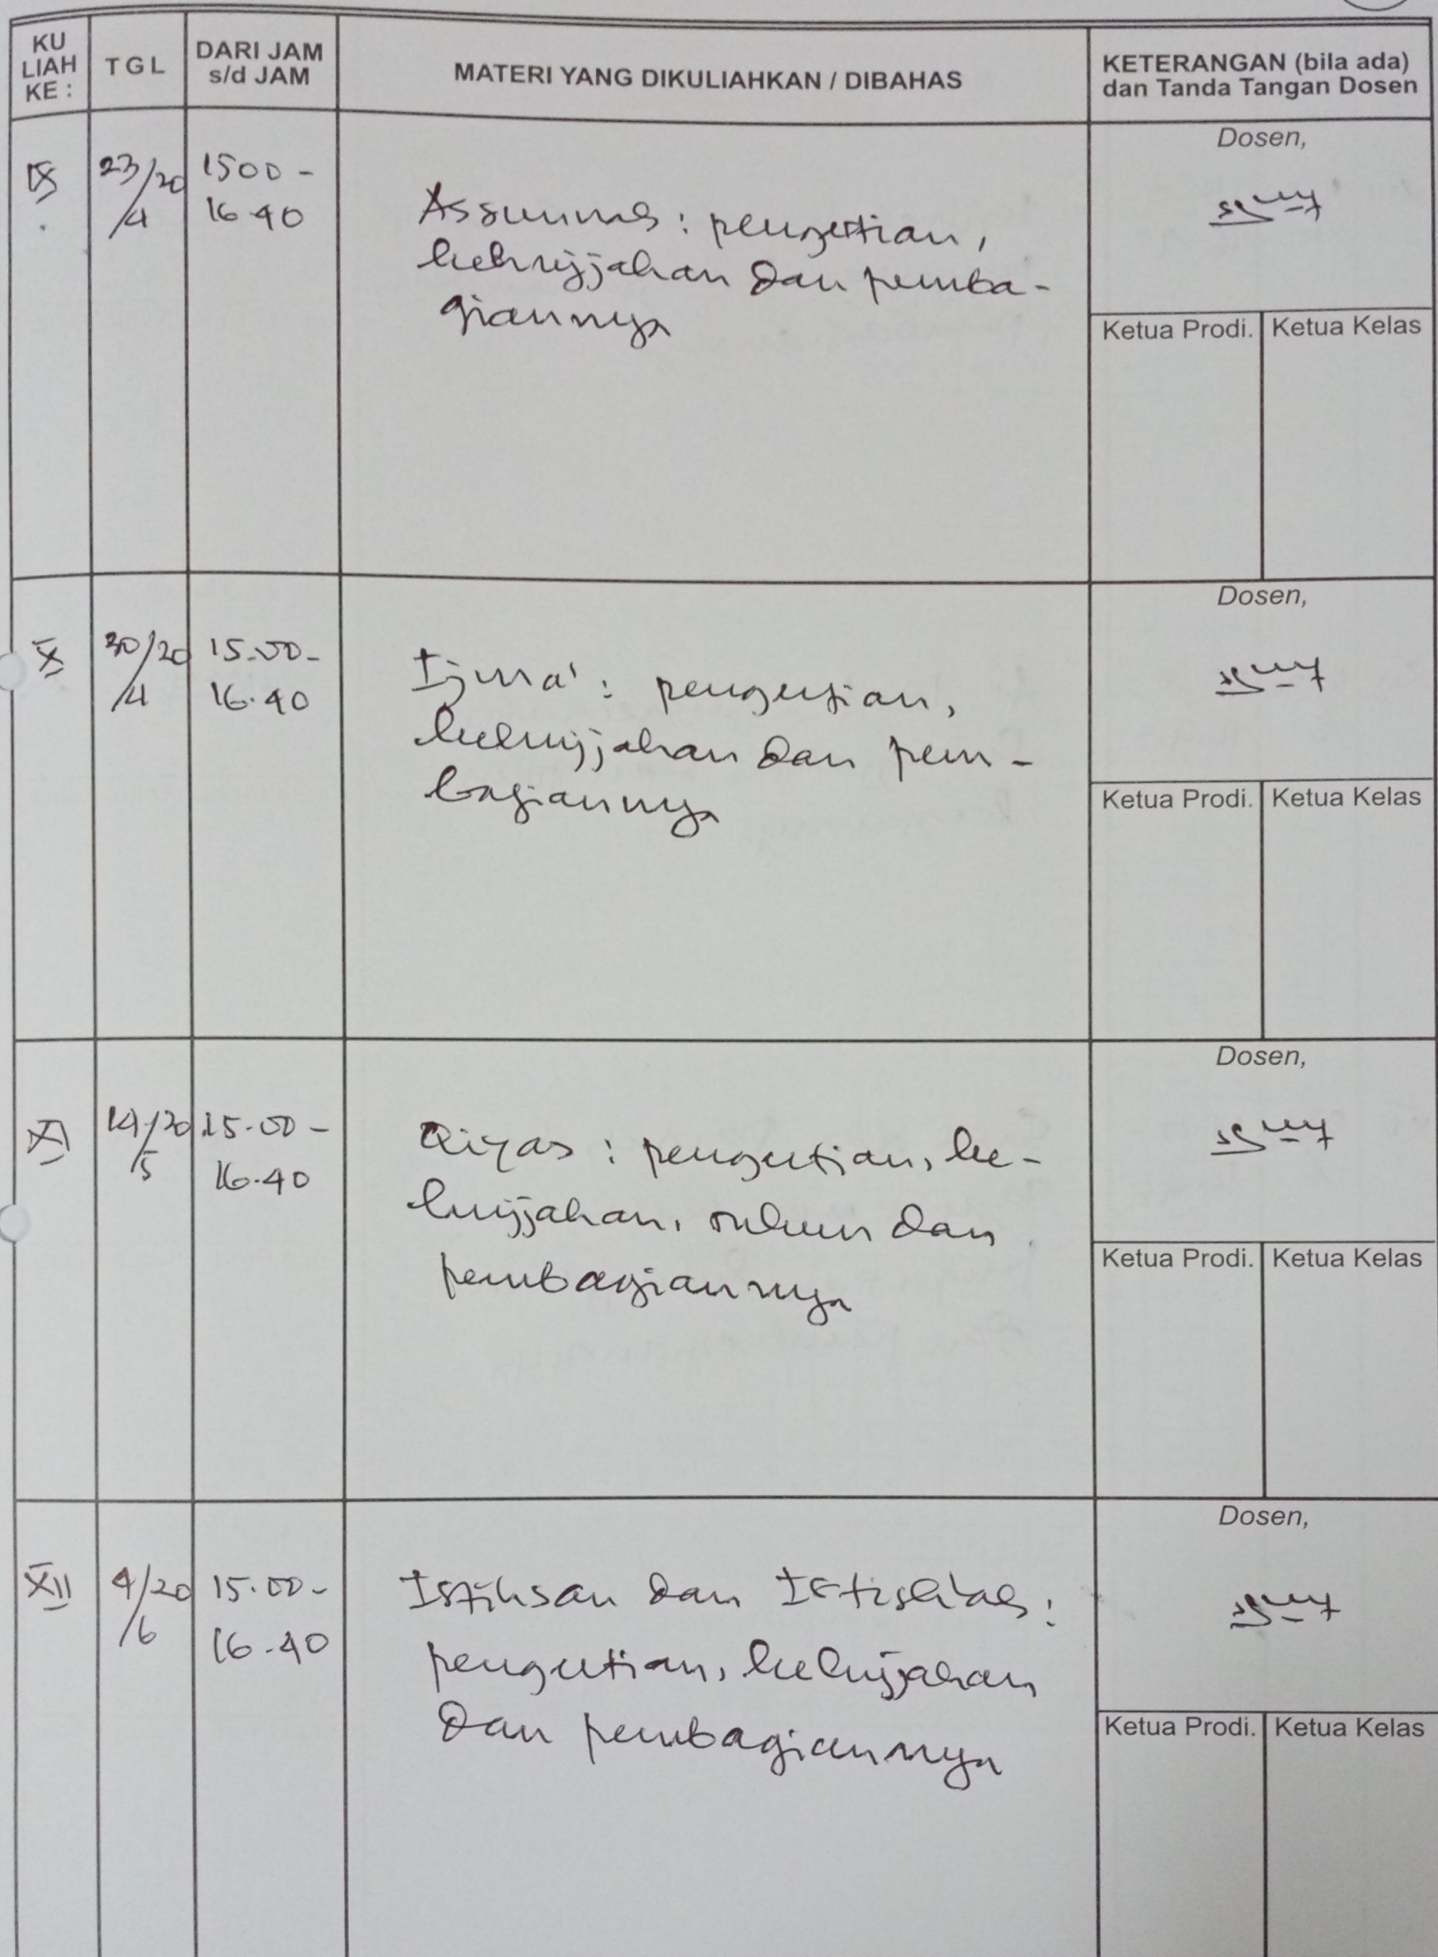 KU
LIAH
KE :
TGL
DARI JAM
s/d JAM
MATERI YANG DIKULIAHKAN / DIBAHAS
KETERANGAN (bila ada)
dan Tanda Tangan Dosen
IX
23/20
/4
1500 -
16.40
Assunnah : pengertian,
kehujjahan dan pemba-
giannya
Dosen,
Ketua Prodi. Ketua Kelas
X
30/20
/4
15.00-
16.40
Ijma' : pengertian,
kehujjahan dan pem-
bagiannya
Dosen,
Ketua Prodi. Ketua Kelas
XI
14/20
/5
15.00 -
16.40
Qiyas : pengertian, ke-
hujjahan, rukun dan
pembagiannya
Dosen,
Ketua Prodi. Ketua Kelas
XII
4/20
/6
15.00-
16.40
Istihsan dan Istishab :
pengertian, kehujjahan
dan pembagiannya
Dosen,
Ketua Prodi. Ketua Kelas